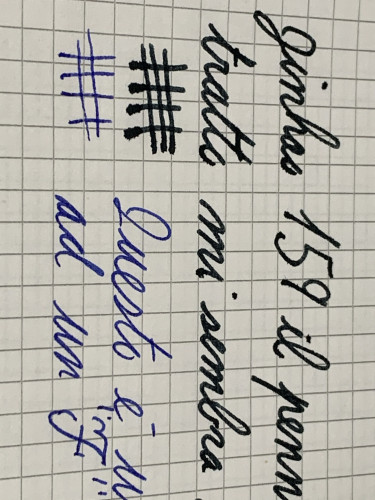 Jinhao 159 il penn
tratto mi sembra
Questo è u
ad un "F"